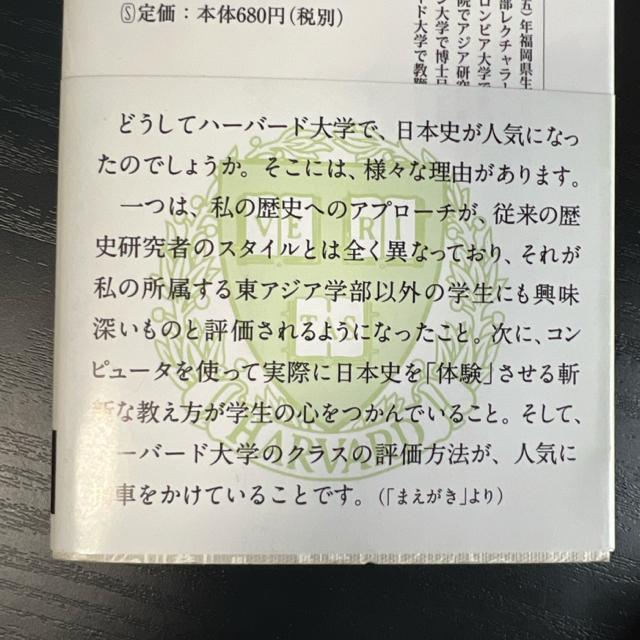 Ⓢ定価：本体680円（税別）
五）年福岡県生
部レクチャラー
ロンビア大学で
院でアジア研究
ン大学で博士
ード大学で教
どうしてハーバード大学で、日本史が人気になっ
たのでしょうか。そこには、様々な理由があります。
一つは、私の歴史へのアプローチが、従来の歴
史研究者のスタイルとは全く異なっており、それが
私の所属する東アジア学部以外の学生にも興味
深いものと評価されるようになったこと。次に、コン
ピュータを使って実際に日本史を「体験」させる斬
新な教え方が学生の心をつかんでいること。そして、
ーバード大学のクラスの評価方法が、人気に
車をかけていることです。（「まえがき」より）
VE RI
TAS
HARVARD